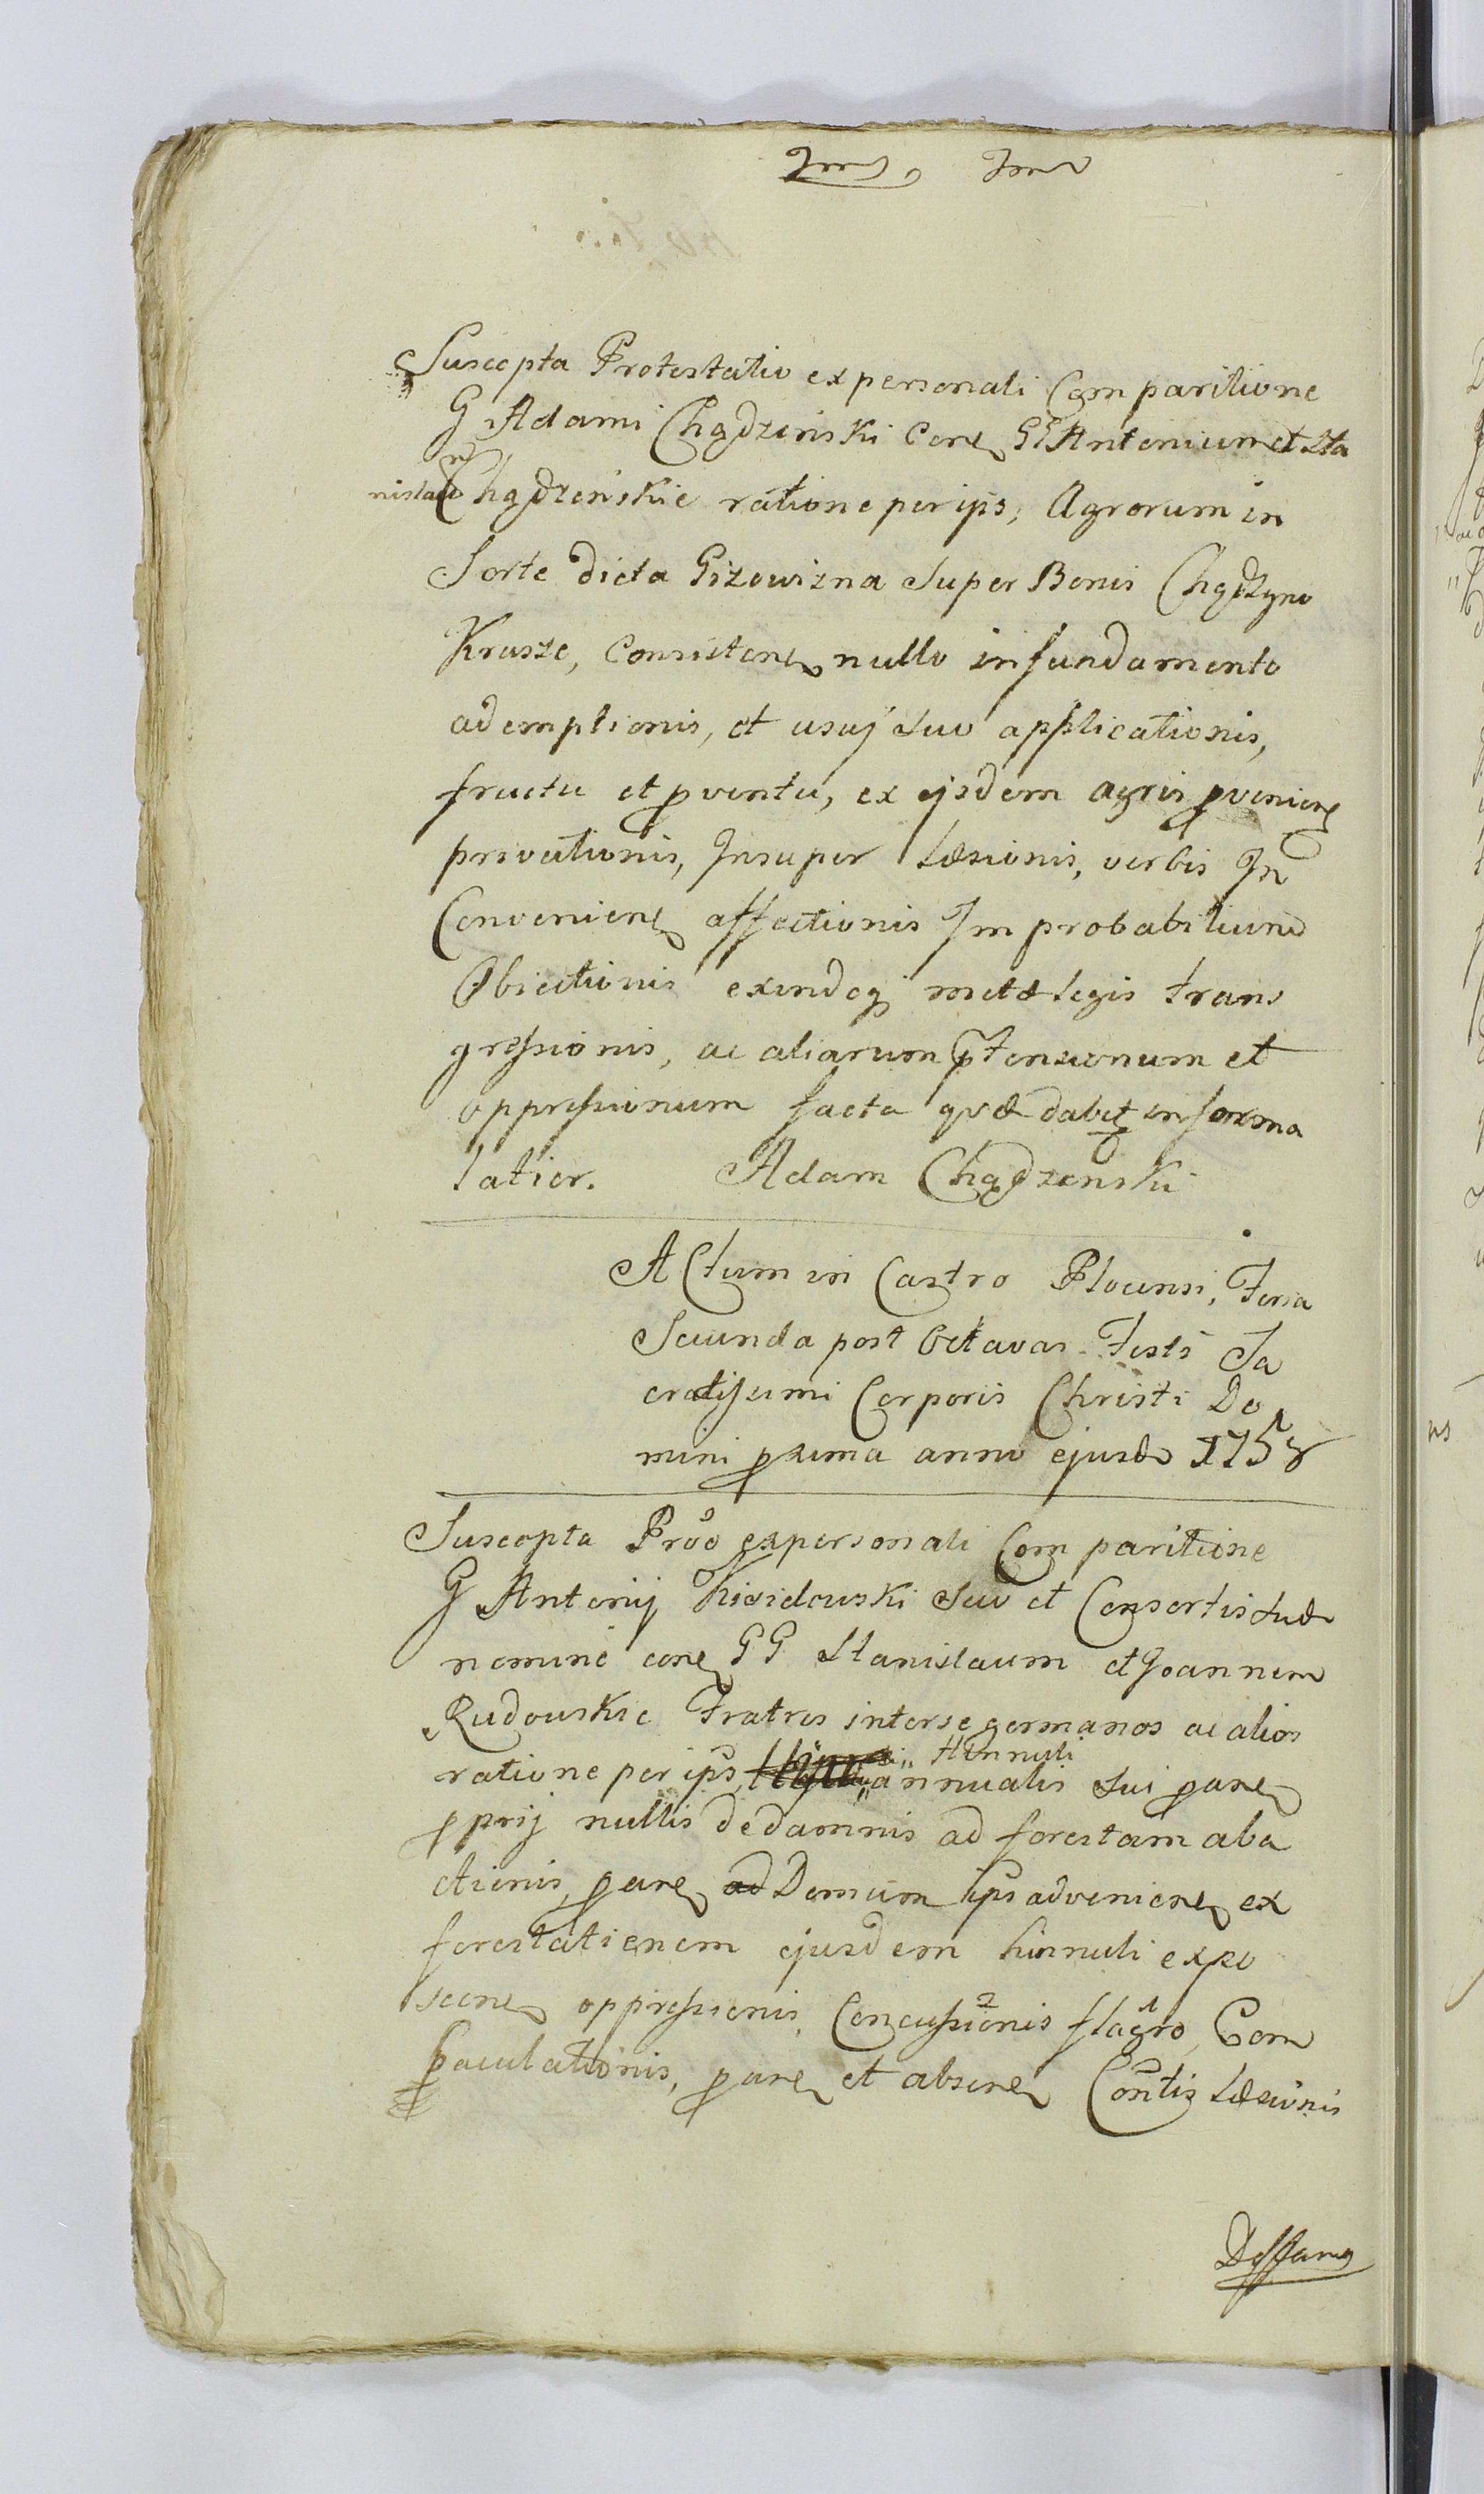 Suscepta Protestatio ex personali Comparitione
G Adami Chądzeński Coner GG Antonium et Sta
nislaum Chądzeńskie ratione per ips, Agrorum in
Sorte dicta Gizowizna Super Bonis Chądzyno
Krusze, Consisten nullo in fundamento
ademptionis, et usuj suo applicationis,
fructu et pventu, ex ijsdem agris pvenien
privationis, Insuper Læsionis, verbis In
Convenien affectionis Improbabilium
Obiectionis exindeq metæ legis trans
gressionis, ac aliarum ptensionum et
oppressionum facta quæ dabit informa
latior. Adam Chądzenski
Actum in Castro Plocensi, Feria
Secunda post Octavas Festi Sa
cratissimi Corporis Christi Do
mini pxima anno ejusd 1758
Suscepta Pröo ex personali Comparitione
G Antonij Suo et Consortis suæ
nomine con GG Stanislaum et Joannem
Rudowskie Fratres inter se germanos ac alios
Hinnuli
ratione per ips, annualis sui paren
pprij nullis de damnis ad forestam aba
ctionis, paren ad Domum ips advenien ex
forestationem ejusdem hinnuli expo
scen oppressionis, Concussionis flagro, Com
paculationis, paren et absen Contis Læsionis